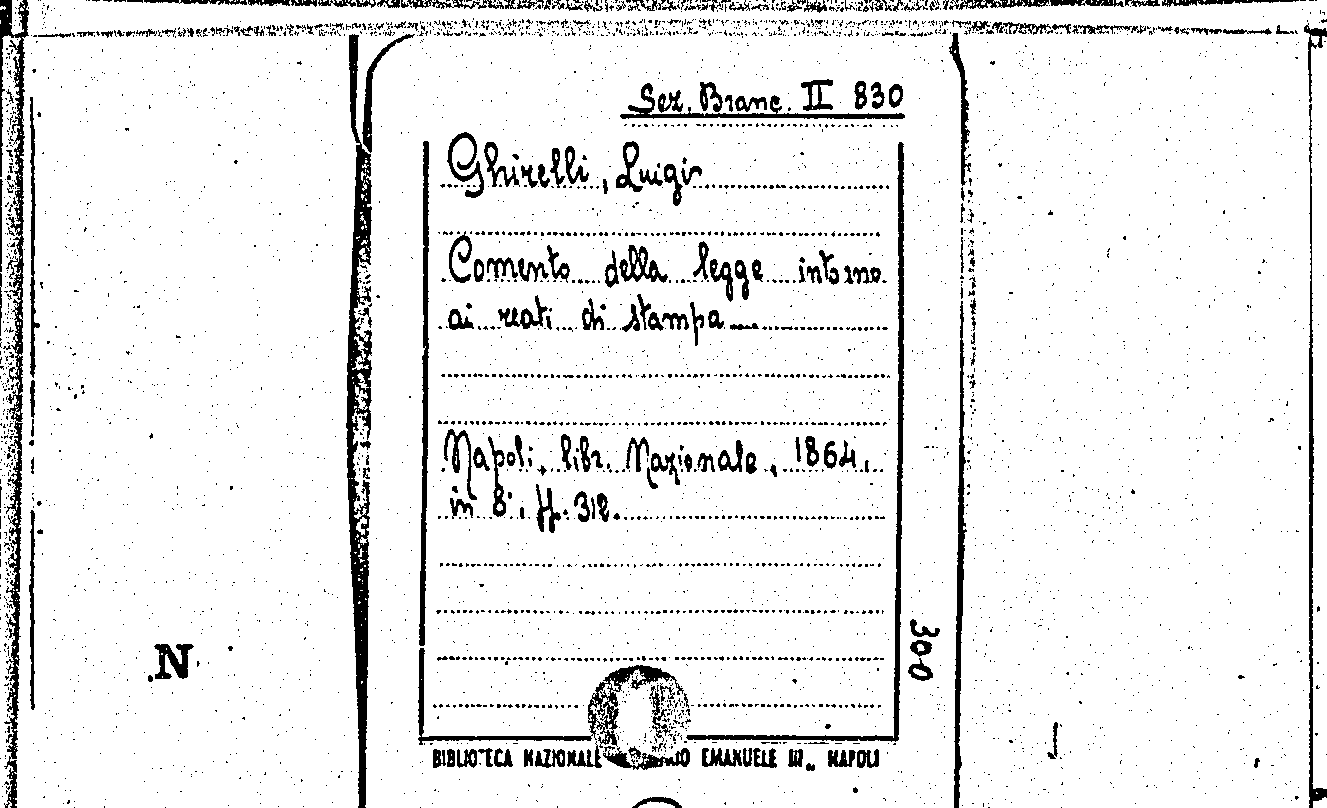 Sez. Branc. II 830
Ghirelli, Luigi
Comento della legge intorno
ai reati di stampa....
Napoli, libr. Nazionale, 1864,
in 8°, ff. 312.
300
N
BIBLIOTECA NAZIONALE EMANUELE III„ NAPOLI